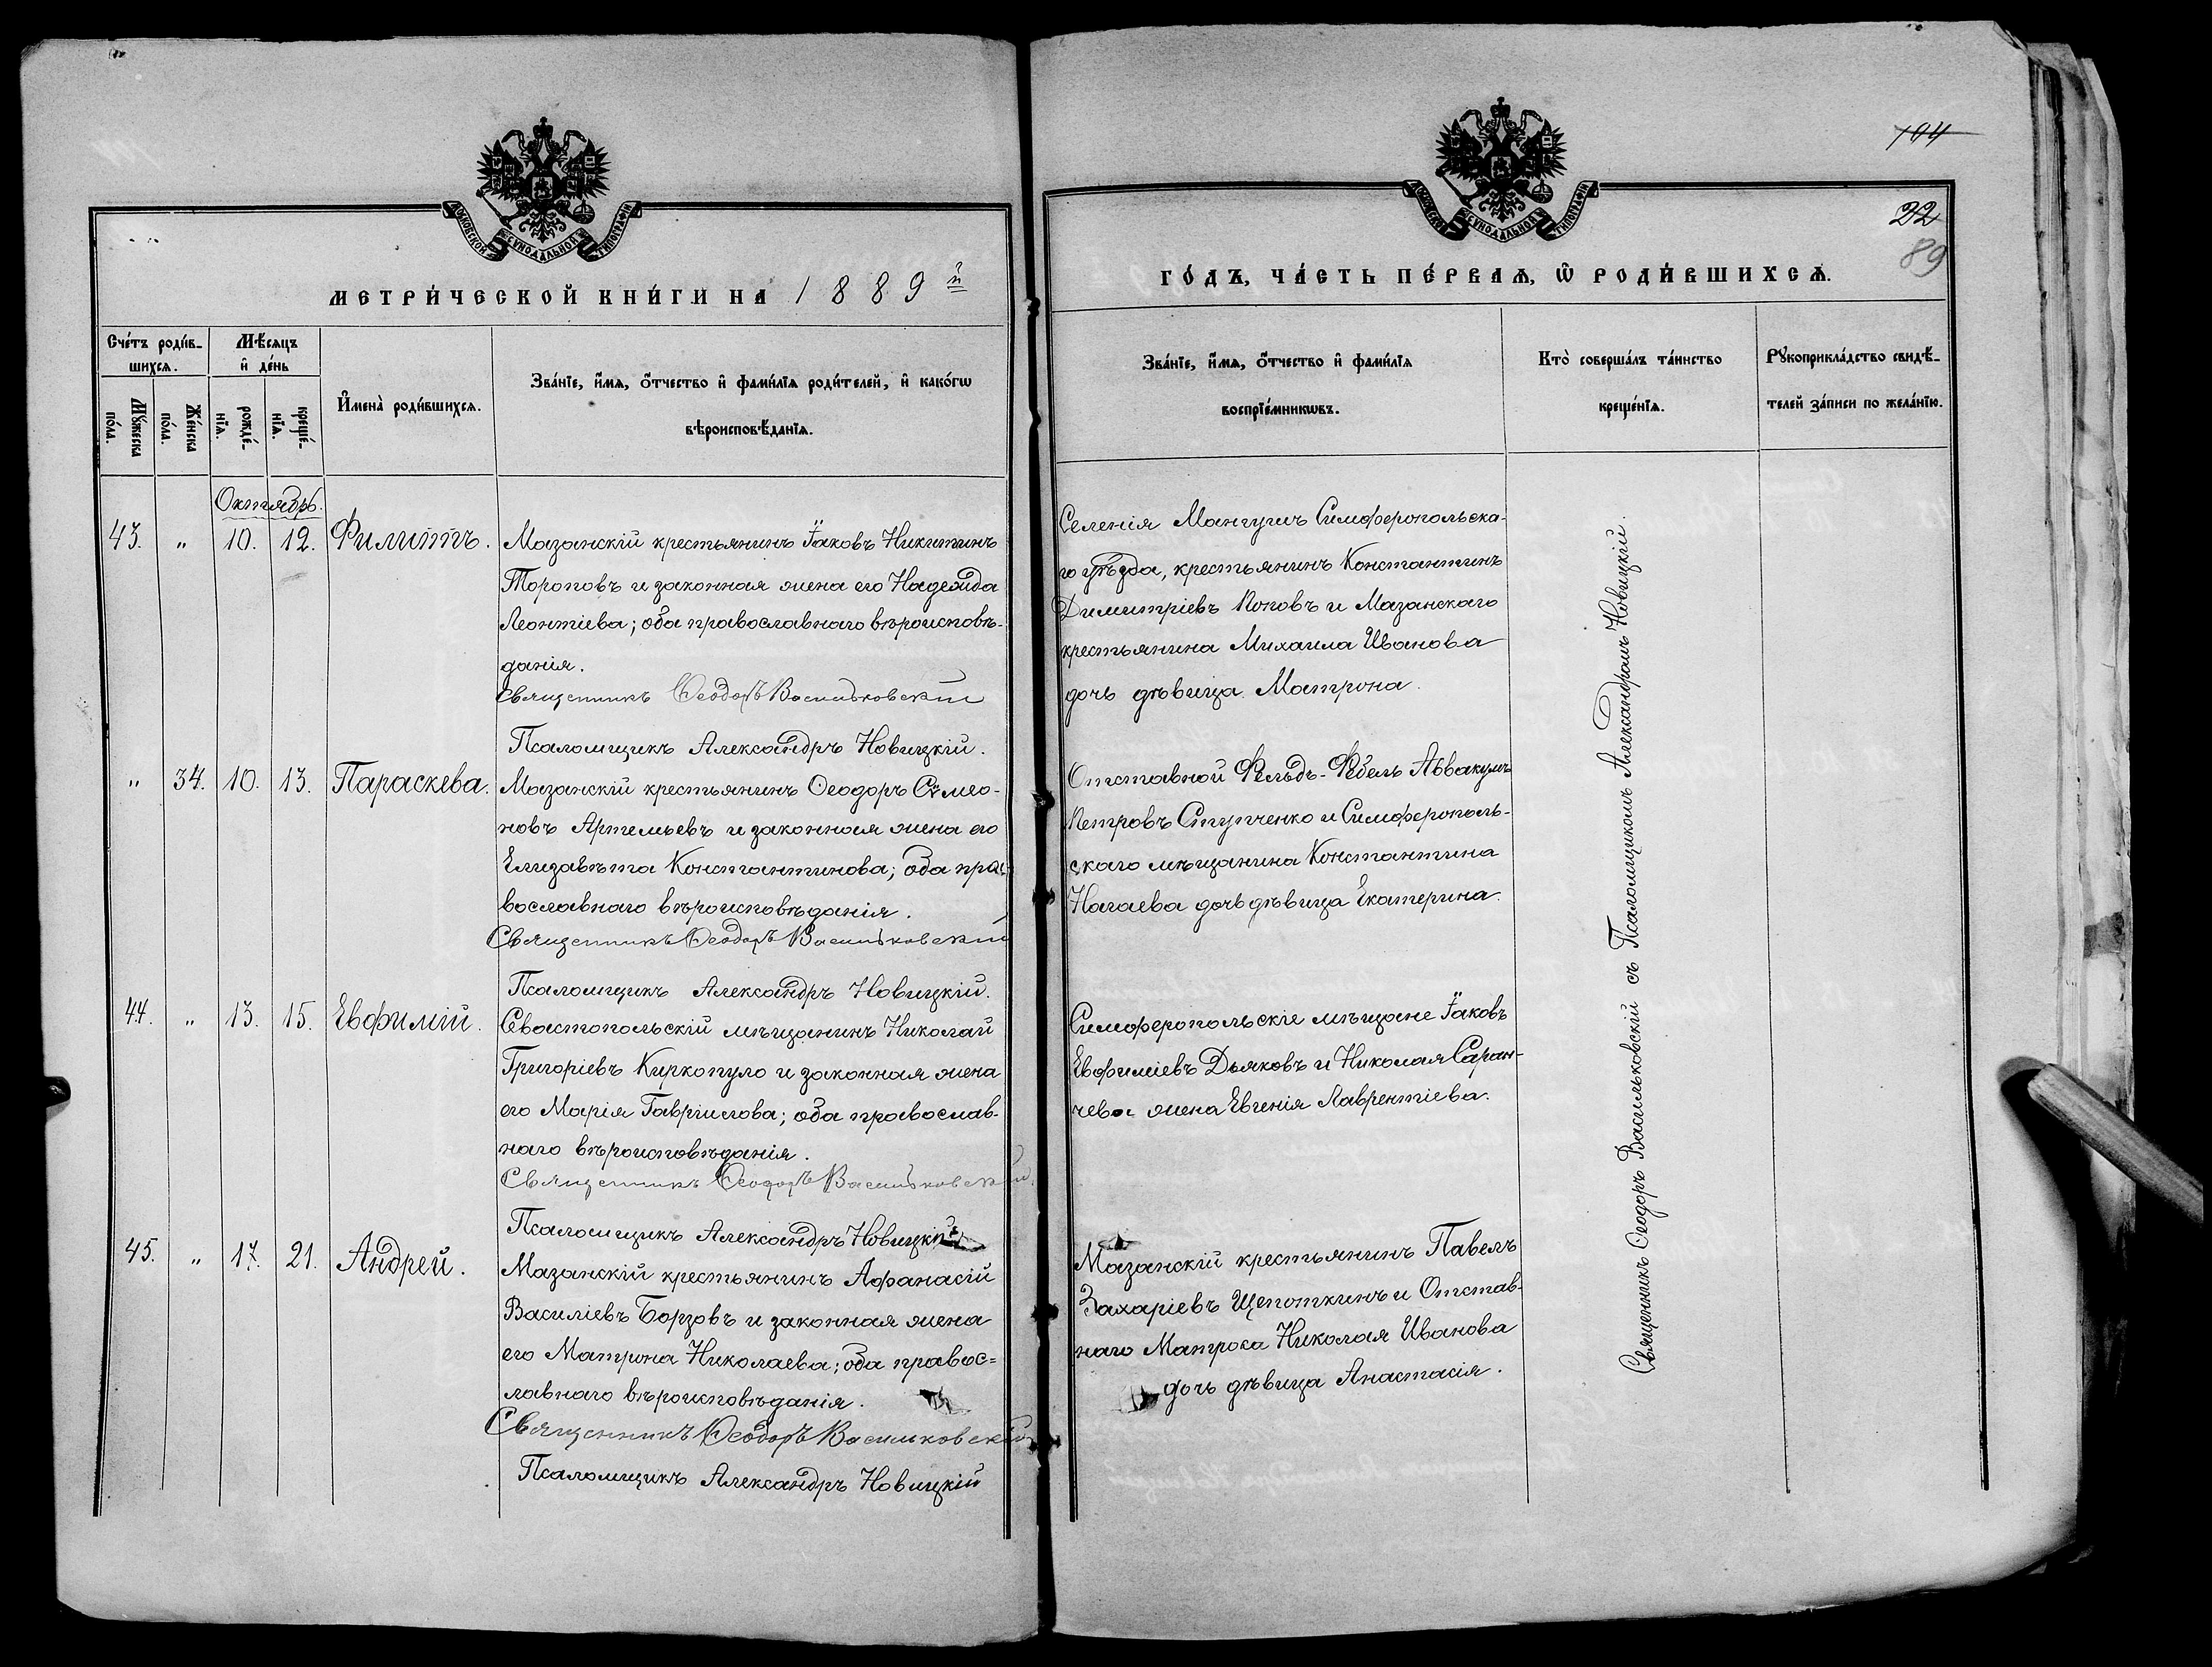 МОСКОВСКОЙ СѴНОДАЛЬНОЙ ТИПОГРАФІИ
МЕТРИ́ЧЕСКОЙ КНИ́ГИ НА 1889й
Сче́тъ роди́в-
шихсѧ.
Мѣ́сѧцъ
и҆ де́нь
Мꙋ́жеска
по́ла.
Же́нска
по́ла.
рожде́-
нїѧ.
креще́-
нїѧ.
И҆мена̀ роди́вшихсѧ.
Зва́нїе, и҆́мѧ, ѻ҆́тчество и҆ фами́лїѧ роди́телей, и҆ како́гѡ
вѣроисповѣ́данїѧ.
Октябрь.
43. " 10. 12. Филиппъ.
Мазанскій крестьянинъ Іаковъ Никитинъ
Тороповъ и законная жена его Надежда
Леонтіева; оба православнаго вѣроисповѣ-
данія.
Священникъ Ѳеодоръ Васильковскій
Псаломщикъ Александръ Новицкій.
" 34. 10. 13. Параскева.
Мазанскій крестьянинъ Ѳеодоръ Симео-
новъ Артемьевъ и законная жена его
Елизавѣта Константинова; оба пра-
вославнаго вѣроисповѣданія.
Священникъ Ѳеодоръ Васильковскій
Псаломщикъ Александръ Новицкій.
44. " 13. 15. Евфимій.
Севастопольскій мѣщанинъ Николай
Григоріевъ Киркопуло и законная жена
его Марія Гавріилова; оба православ-
наго вѣроисповѣданія.
Священникъ Ѳеодоръ Васильковскій.
Псаломщикъ Александръ Новицкій
45. " 17. 21. Андрей.
Мазанскій крестьянинъ Афанасій
Василіевъ Борзовъ и законная жена
его Матрона Николаева; оба правос=
лавнаго вѣроисповѣданія.
Священникъ Ѳеодоръ Васильковскій
Псаломщикъ Александръ Новицкій
МОСКОВСКОЙ СѴНОДАЛЬНОЙ ТИПОГРАФІИ
104
22
89
ГО́ДЪ, ЧА́СТЬ ПЕ́РВАѦ, Ѽ РОДИ́ВШИХСѦ.
Зва́нїе, и҆́мѧ, ѻ҆́тчество и҆ фами́лїѧ
воспрїе́мникѡвъ.
Кто̀ соверша́лъ та́инство
креще́нїѧ.
Рꙋкоприкла́дство свидѣ́-
телей за́писи по жела́нїю.
Селенія Мангушъ Симферопольска-
го уѣзда, крестьянинъ Константинъ
Димитріевъ Поповъ и Мазанскаго
крестьянина Михаила Иванова
дочь дѣвица Матрона.
Отставной Фельдъ-Фебель Аввакумъ
Петровъ Ступченко и Симферополь-
скаго мѣщанина Константина
Нагаева дочь дѣвица Екатерина.
Симферопольскіе мѣщане Іаковъ
Евфиміевъ Дьяковъ и Николая Саран-
чева жена Евгенія Лаврентіева.
Мазанскій крестьянинъ Павелъ
Захаріевъ Щепоткинъ и Отстав-
наго Матроса Николая Иванова
дочь дѣвица Анастасія.
Священникъ Ѳеодоръ Васильковскій съ Псаломщикомъ Александромъ Новицкій.